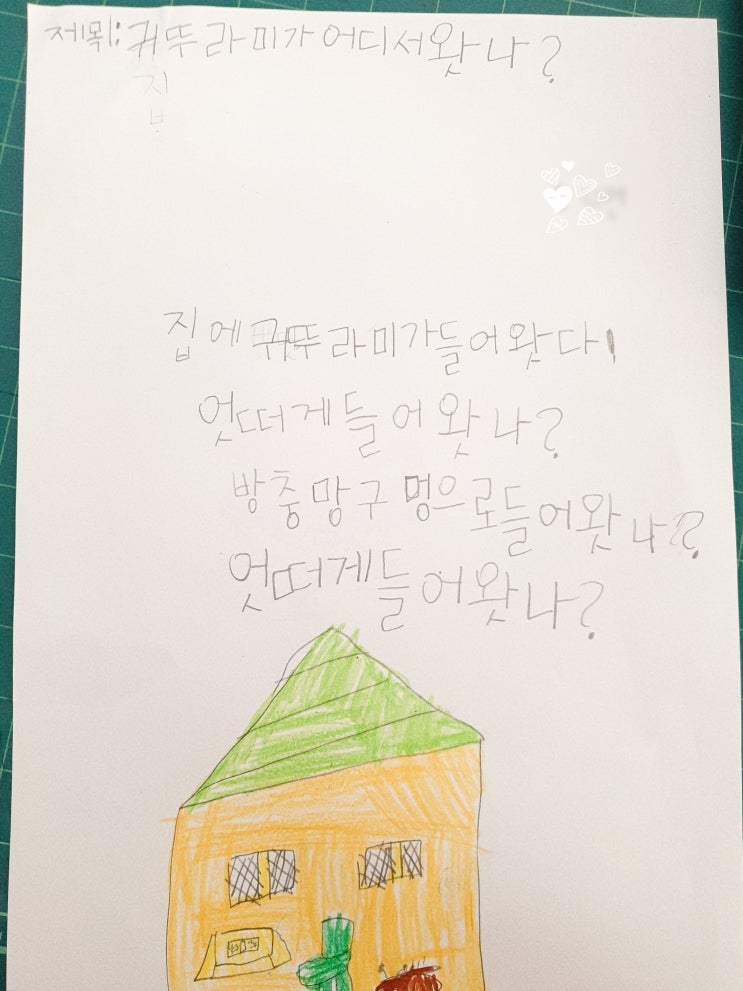 제목: 귀뚜라미가 어디서왓나?
집
집에 귀뚜라미가들어왓다!
엇떠게들어왓나?
방충망구멍으로들어왓나?
엇떠게들어왓나?